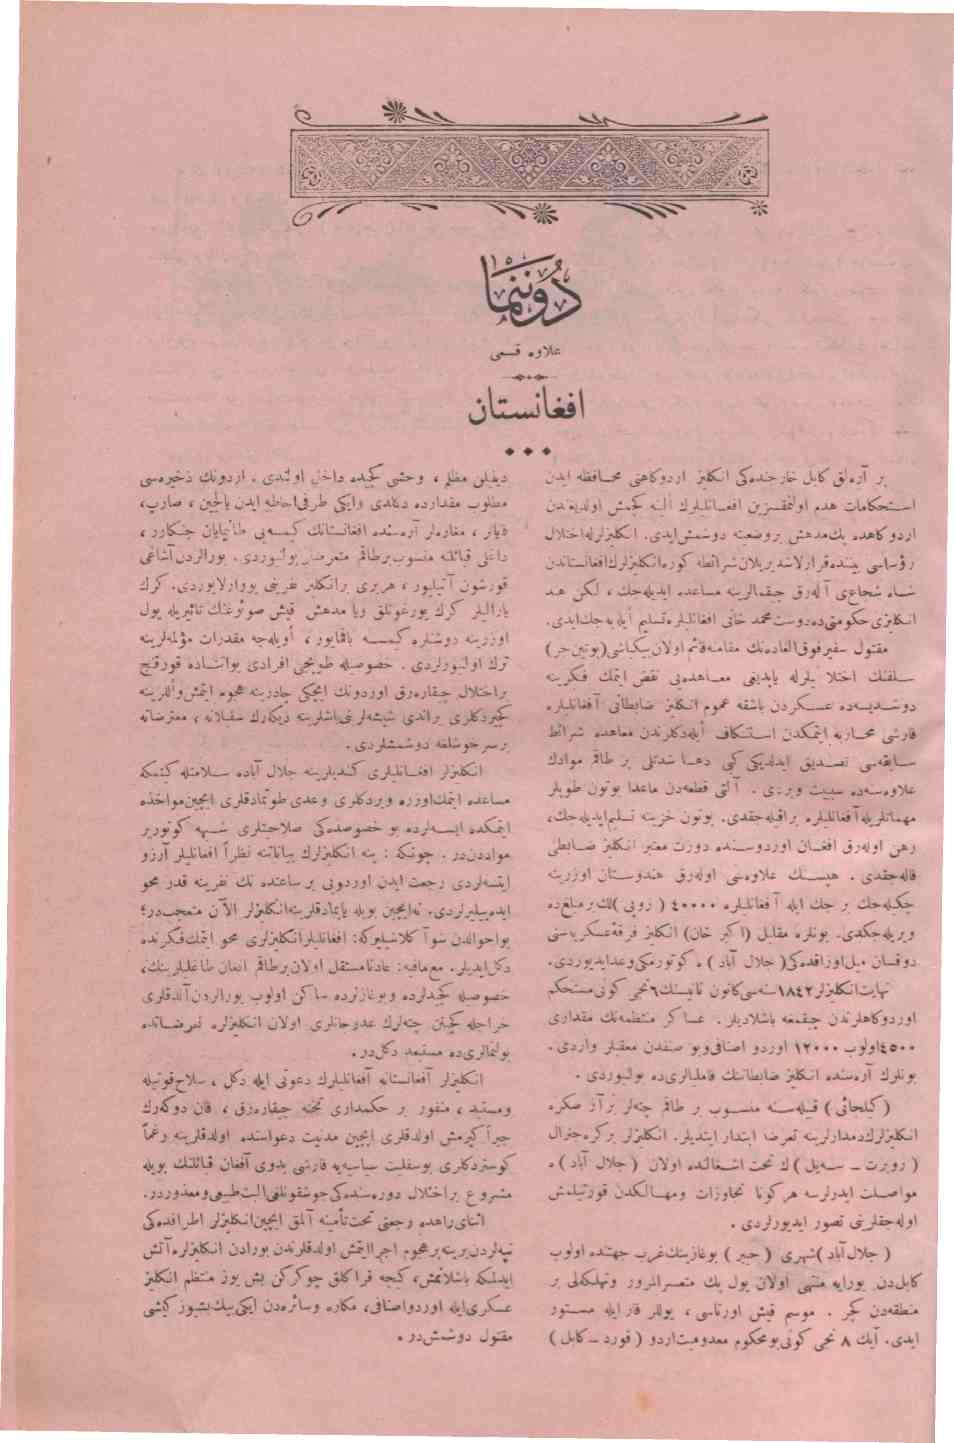 دوننما
علاوه قسمی
افغانستان
بر آره‌لق كابل خارجنده‌كی انكلیز اردوكاهنی محافظه ایدن
استحكامات هدم اولنمقسزین افغانلیلرك الینه كچمش اولدیغندن
اردوكاهده پك مدهش بر وضعیته دوشمش ایدی. انكلیزلرله اختلال
رؤساسی بیننده قرارلاشدیریلان شرائطه كوره انكلیزلرك افغانستاندن
شاه شجاعی آله‌رق چیقمالرینه مساعده ایدیله‌جك، لكن هند
انكلیزی حكومتی ده دوست محمد خانی افغانلیلره تسلیم ایله‌یه‌جك ایدی.
مقتول سفیر فوق العاده‌نك مقامنه قائم اولان بیكباشی (پوتین‌جر)
سلفنك اختلالیلرله یاپدیغی معاهده‌یی نقض ایتمك فكرینه
دوشدیسه‌ده عسكردن باشقه عموم انكلیز ضابطانی آفغانلیلره
قارشی محاربه ایتمكدن استنكاف ایله‌دكلرندن معاهده شرائط
سابقه‌سی تصدیق ایدلدیكی كبی دها شدتلی بر طاقم موادك
علاوه‌سنه‌ده سبیت ویردی. آلتی قطعه‌دن ماعدا بوتون طوپلر
مهماتلریله آفغانلیلره براقیله‌جقدی. بوتون خزینه تسلیم ایدیله‌جك،
رهن اوله‌رق افغان اوردوسنده دورت معتبر انكلیز ضابطی
قاله‌جقدی. هپسنك علاوه‌سی اوله‌رق هندوستان اوزرینه
چكیله‌جك بر چك ایله آفغانلیلره ٤٠٠٠٠ (روپی) لك بر مبلغ ده
ویریله‌جكدی. بونلره مقابل (اكبر خان) انكلیز فرقهٔ عسكریه‌سنی
دوقسان میل اوزاقده‌كی (جلال آباد) ه كوتورمكی وعد ایدیوردی.
نهایت انكلیزلر ١٨٤٢ سنه‌سی كانون ثانیسنك ٦ نجی كونی مستحكم
اوردوكاهلرندن چیقمغه باشلادیلر. عساكر منتظمه‌نك مقداری
٤٥٠٠ اولوب ١٢٠٠٠ اوردو اصنافی و بو صنفدن معقبلر واردی.
بونلرك آره‌سنده انكلیز ضابطاننك فامیلیالری ده بولنیوردی.
(كیلجائی) قبیله‌سنه منسوب بر طاقم چته‌لر برآز صكره
انكلیزلرك دمدارلرینه تعرضه ابتدار ایتدیلر. انكلیزلر بركره جنرال
(روبرت ـ سه‌یل) ك تحت اشغالنده اولان (جلال آباد) ه
مواصلت ایدرلرسه هر كونا تجاوزات ومهالكدن قورتیلمش
اوله‌جقلرینی تصور ایدیورلردی.
(جلال آباد) شهری (خیبر) بوغازینك غرب جهتنده اولوب
كابلدن بورایه منتهی اولان یول پك متعسر المرور وتهلكه‌لی بر
منطقه‌دن كچر. موسم قیش اورتاسی، یوللر قار ایله مستور
ایدی. آیك ٨ نجی كونی بو محكوم معدومیت اردو (قورد ـ كابل)
دینیلن مظلم، وحشی كچیده داخل اولندی. اردونك ذخیره‌سی
مطلوب مقدارده دكلدی وایكی طرفی احاطه ایدن یالچین، صارپ،
قیالر، مغاره‌لر آره‌سنده افغانستانك كیمسه‌یی طانیمایان جنكاور،
داغلی قبائلنه منسوب بر طاقم متعرضلر بولنیوردی. بورالردن آشاغی
قورشون آتیلیور، هر بری بر انكلیز نفرینی یووارلایوردی. كرك
یارالیلر كرك یورغونلق ویا مدهش قیش صوغوغنك تأثیریله یول
اوزرینه دوشنلره كیمسه باقمایور، اویله‌جه مقدرات مؤلمه‌لرینه
ترك اولنیورلردی. خصوصیله طوپجی افرادی بو اثناده قورقنج
بر اختلال چیقاره‌رق اوردونك ایچكی چادرینه هجوم ایتمش و اللرینه
كچیردكلری براندی شیشه‌لرینی باشلرینه دیكه‌رك سفیلانه، معترضانه
بر سرخوشلغه دوشمشلردی.
انكلیزلر افغانلیلری كندیلرینه جلال آباده سلامتله كیتمكه
مساعده ایتمك اوزره ویردكلری وعدی طوتمادقلری ایچین مواخذه
ایتمكده ایسه‌لرده بو خصوصده‌كی صلاحیتلری شبهه كوتوریر
مواددندر. چونكه: ینه انكلیزلرك بیاناتنه نظراً افغانلیلر آرزو
ایتسه‌لردی رجعت ایدن اوردویی بر ساعتده تك نفرینه قدر محو
ایده‌بیلیرلردی. نه ایچین بویله یاپمادقلرینه انكلیزلر الآن متعجبدر؛
بو احوالدن شو آكلاشیلیوركه: افغانلیلر انكلیزلری محو ایتمك فكرنده
دكل ایدیلر. مع‌مافیه: عادتا مستقل اولان بر طاقم افغان طاغلیلرینك،
خصوصیله كچیدلرده وبوغازلرده ساكن اولوب بورالردن آلدقلری
خراجله كچینن چته‌لرك عدو جانلری اولان انكلیزلره تعرضاتده
بولنمالری ده مستبعد دكلدر.
انكلیزلر آفغانستانه آفغانلیلرك دعوتی ایله دكل، سلاح قوتیله
ومستبد، منفور بر حكمداری تخته چیقاره‌رق، قان دوكه‌رك
جبراً كیرمش اولدقلری ایچین مدنیت دعواسنده اولدقلرینه رغماً
كوستردكلری بو سفلیت سیاسیه‌یه قارشی بدوی آفغان قبائلنك بویله
مشروع بر اختلال دوره‌سنده‌كی جوشقونلغی البت طبیعی ومعذوردر.
اثنای راهده رجعتی تحت تأمینه آلمق ایچین انكلیزلر اطرافده‌كی
تپه‌لردن برینه بر هجوم اجرا ایتمش اولدقلرندن بورادن انكلیزلره آتش
ایدلمكه باشلانمش، كیجه قراكلق چوكركن بش یوز منتظم انكلیز
عسكری ایله اوردو اصنافی، مكاره وسائره‌دن ایكی بیك بشیوز كیشی
مقتول دوشمشدر.